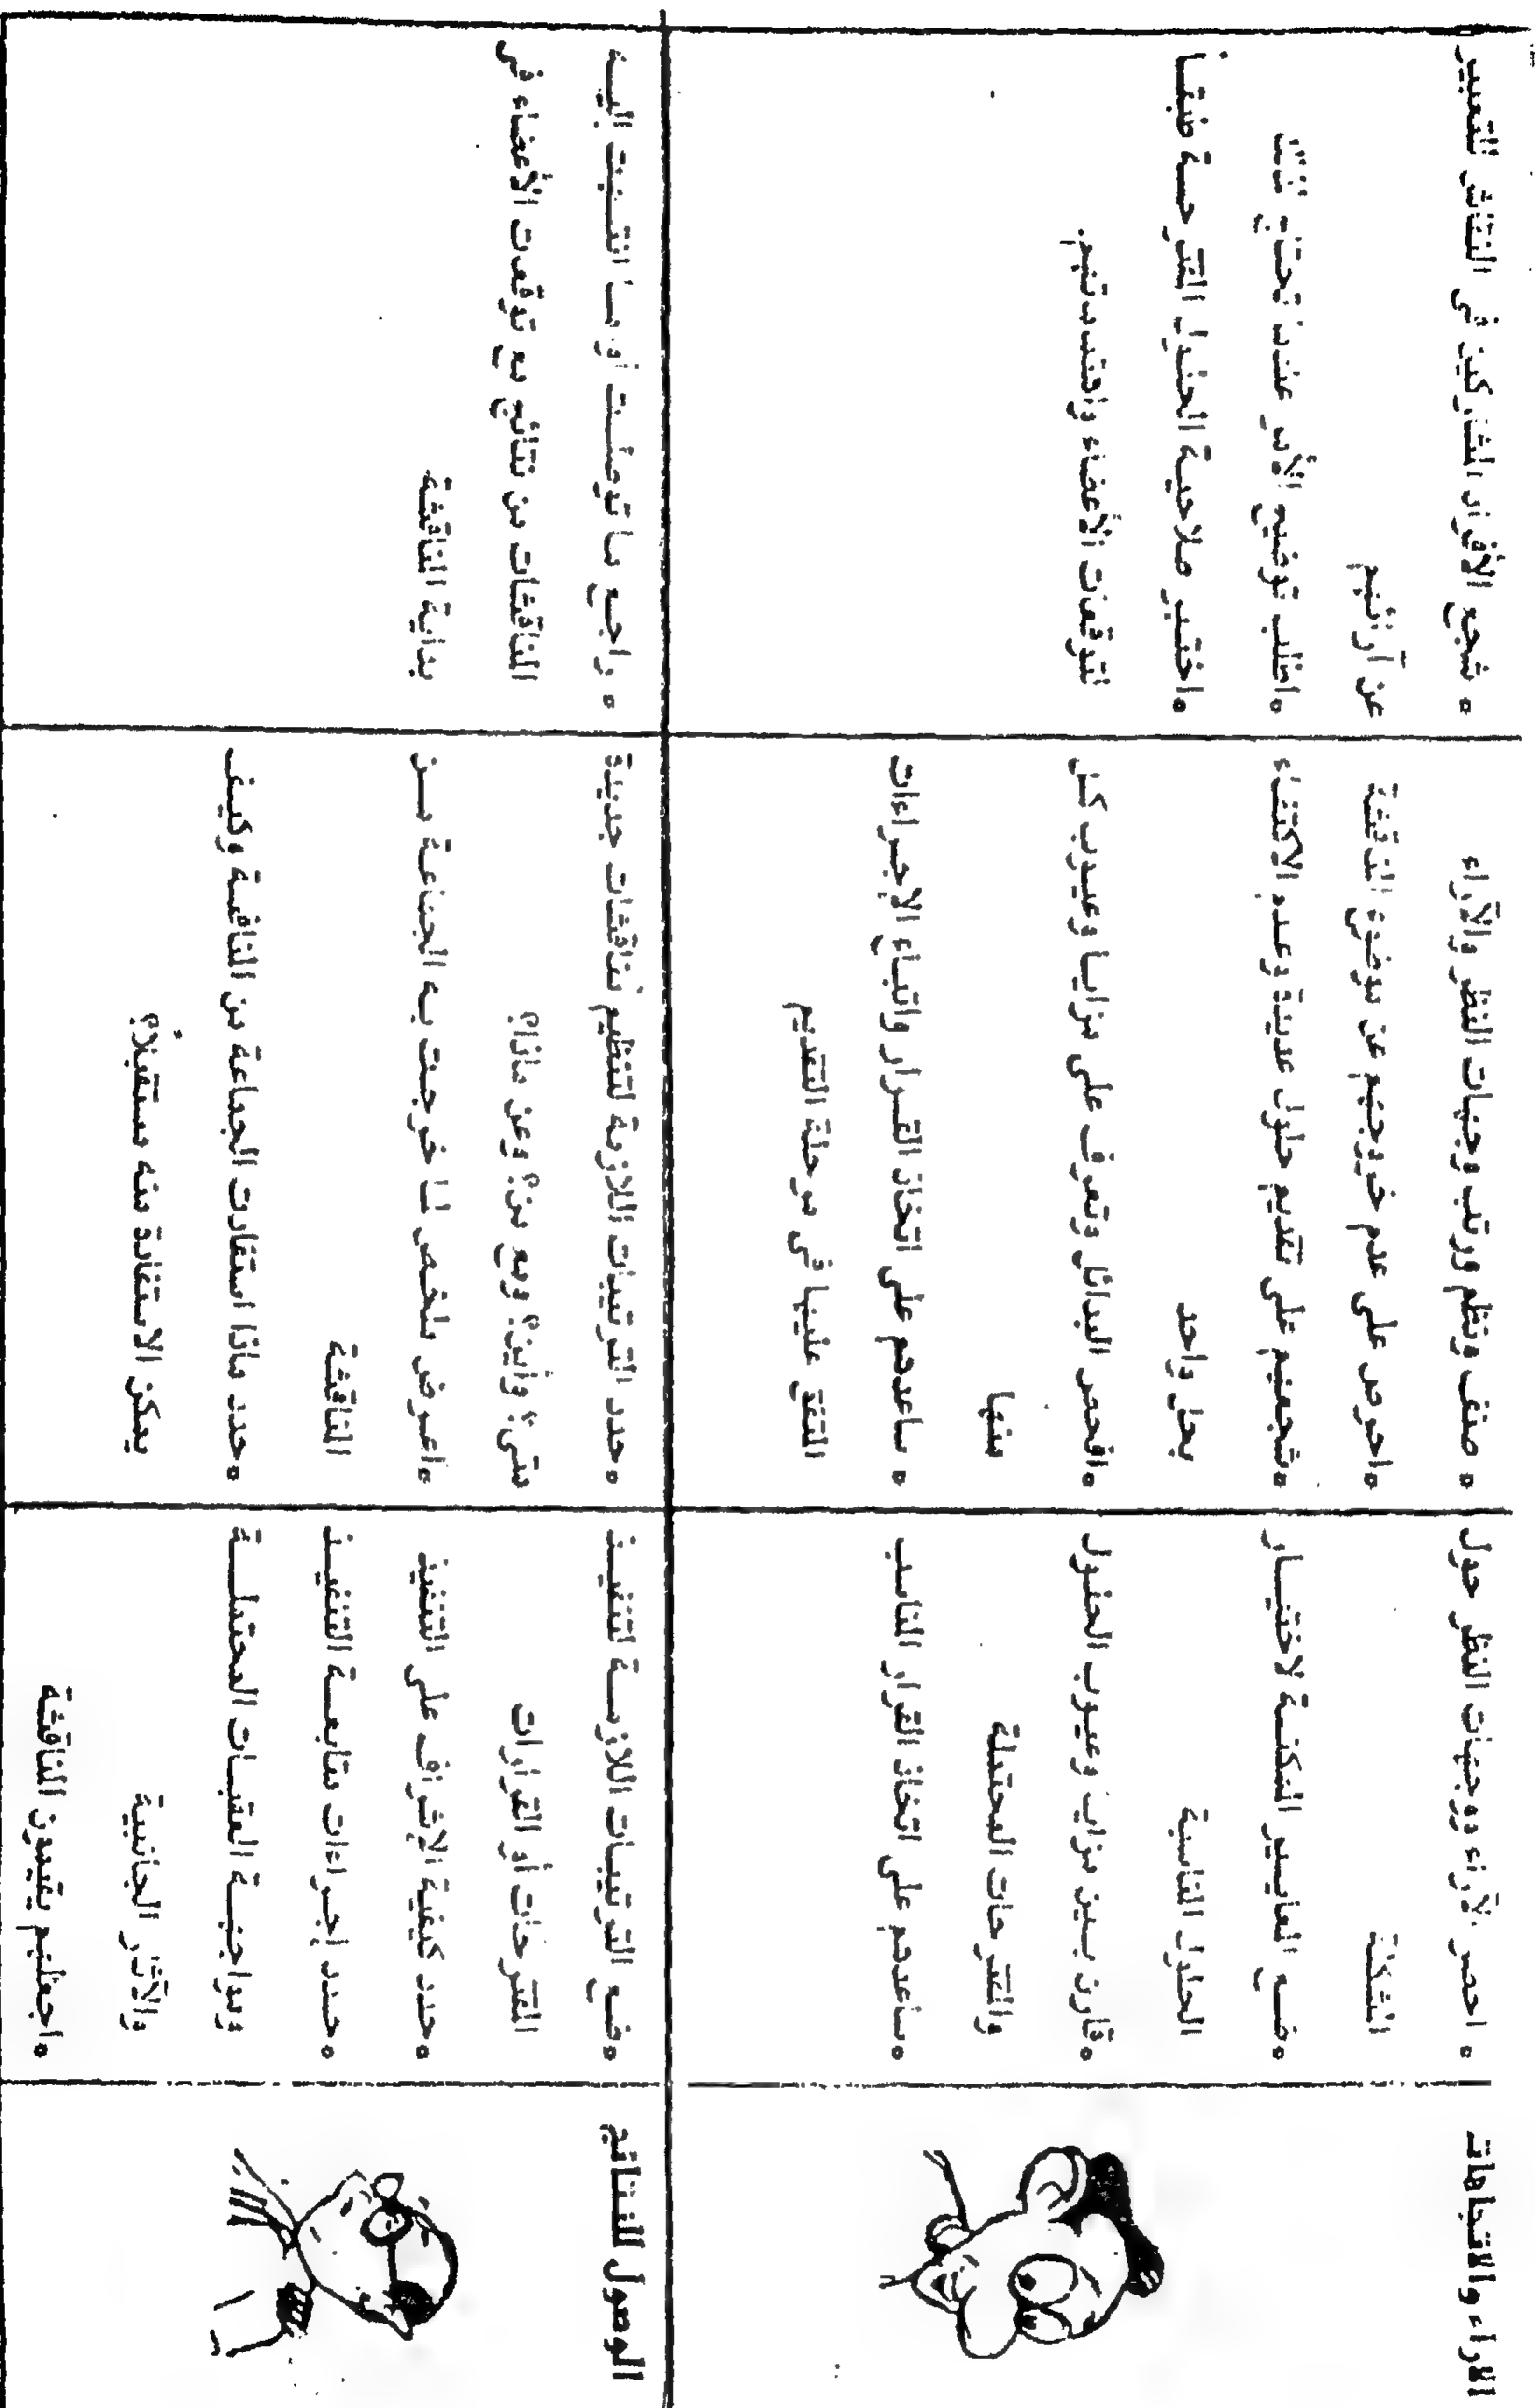 الآراء والاتجاهات
• احصر الآراء ووجهات النظر حول
المشكلة
• ضع المعايير الممكنة لاختيار
الحلول المناسبة
• قارن بين مزايا وعيوب الحلول
والمقترحات المحتملة
• ساعدهم على اتخاذ القرار المناسب
• صنف ونظم ورتب وجهات النظر والآراء
• احرص على عدم خروجهم عن موضوع المناقشة
• شجعهم على تقديم حلول عديدة وعدم الاكتفاء
بحل واحد
• افحص البدائل وتعرف على مزايا وعيوب كل
منها
• ساعدهم على اتخاذ القرار واتباع الإجراءات
المتفق عليها في مرحلة التقديم
• شجع الأفراد المشاركين في النقاش للتعبير
عن آرائهم
• اطلب توضيح الأمر عندما تحتاج لذلك
• اختبر صلاحية الحلول المقترحة طبقا
لتوقعات الأعضاء واعتقاداتهم.
الوصول للنتائج
• ضع الترتيبات اللازمة لتنفيذ
المقترحات أو القرارات
• حدد كيفية الإشراف على التنفيذ
• حدد إجراءات متابعة التنفيذ
ومواجهة العقبات المحتملة
والآثار الجانبية
• اجعلهم يقيمون المناقشة
• حدد الترتيبات اللازمة لتنظيم مناقشات جديدة
متى؟ وأين؟ ومع من؟ وعن ماذا؟
• اعرض ملخص لما خرجت به الجماعة من
المناقشة
• حدد ماذا استفادت الجماعة من المناقشة وكيف
يمكن الاستفادة منه مستقبلاً؟
• راجع ما توصلت أو ما انتهيت إليه
المناقشات من نتائج مع توقعات الأعضاء في
بداية المناقشة